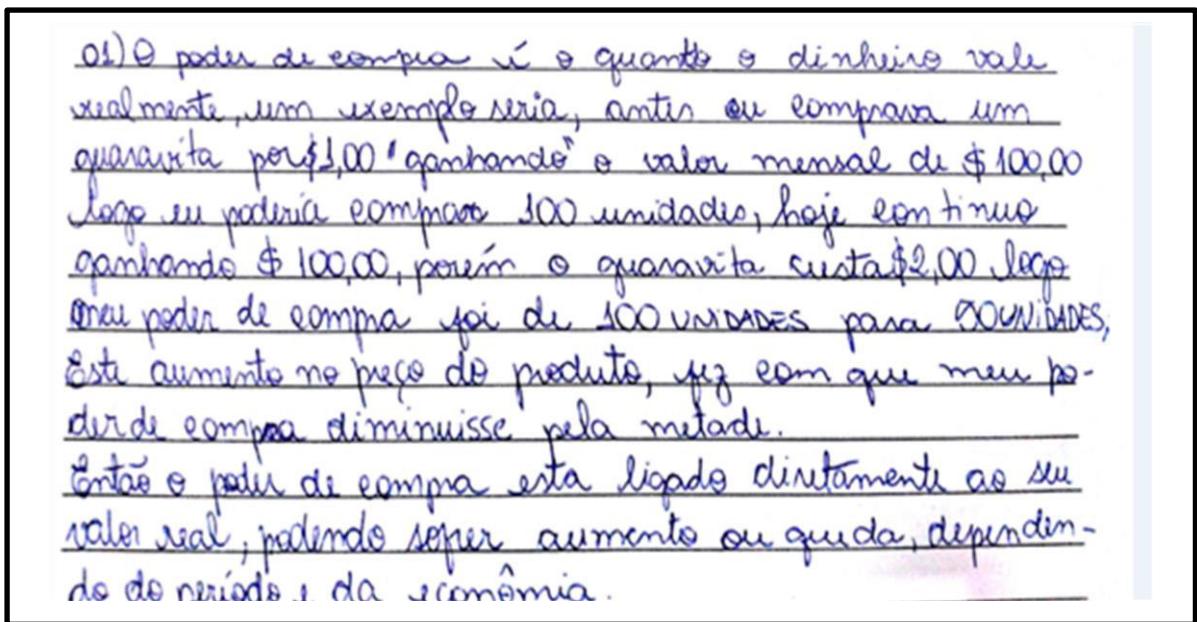 01) O poder de compra é o quanto o dinheiro vale
realmente, um exemplo seria, antes eu comprava um
guaravita por $1,00 "ganhando" o valor mensal de $ 100,00
logo eu poderia comprar 100 unidades, hoje continuo
ganhando $ 100,00, porém o guaravita custa $2,00 logo
meu poder de compra foi de 100 UNIDADES para 50 UNIDADES,
Este aumento no preço do produto, fez com que meu po-
der de compra diminuisse pela metade.
Então o poder de compra esta ligado diretamente ao seu
valor real, podendo sofrer aumento ou queda, dependen-
do do período e da econômia.